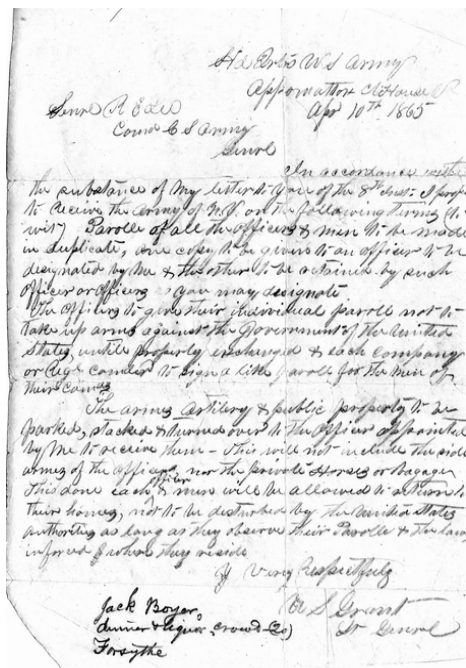 Hd Qrtrs U S Army
Appomattox Ct House
Apr 10th 1865
Genrl R E Lee
Comd C S Army
Genrl
In accordance with
the substance of my letter to you of the 8th inst. I
to receive the army of N.V. on the following terms (to
wit) Parolls of all the officers & men to be made
in duplicate, one copy to be given to an officer to be
designated by me & the other to be retained by such
officer or officers as you may designate
The officers to give their individual paroll not to
take up arms against the Government of the United
States, untill properly exchanged & each company
or to sign a like paroll for the men of
their
The arms artilery & public property to be
parked, stacked & turned over to the officer appointed
by me to receive them - This will not include the side
armes of the officers nor the private Horses or bagage
This done each officer & men will be allowed to return to
their homes, not to be disturbed by the United States
authorities as long as they observe their Parolls & the laws
in forced where they reside
Very Respectfuly
U S Grant
Lt Genrl
Jack Boyer,
dinner & liquor, crowd
Forsythe